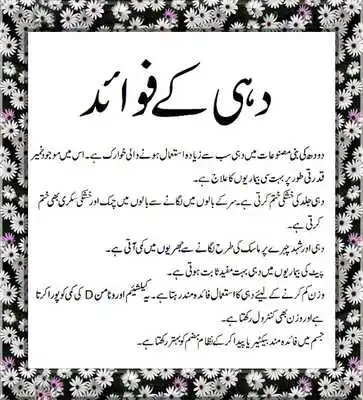 دہی کے فوائد
دودھ کی بنی مصنوعات میں دہی سب سے زیادہ استعمال ہونے والی خوراک ہے۔ اس میں موجود خمیر
قدرتی طور پر بہت سی بیماریوں کا علاج ہے۔
دہی جلد کی خشکی ختم کرتی ہے۔ سر کے بالوں میں لگانے سے بالوں میں چمک اور خشکی سکری بھی ختم
کرتی ہے۔
دہی اور شہد چہرے پر ماسک کی طرح لگانے سے جھریوں میں کمی آتی ہے۔
پیٹ کی بیماریوں میں دہی بہت مفید ثابت ہوتی ہے۔
وزن کم کرنے کے لیئے دہی کا استعمال فائدہ مند رہتا ہے۔ یہ کیلشیئم اور وٹامن D کی کمی کو پورا کرتا
ہے اور وزن بھی کنٹرول رکھتا ہے۔
جسم میں فائدہ مند بیکٹیریا پیدا کر کے نظام ہضم کو بہتر رکھتا ہے۔